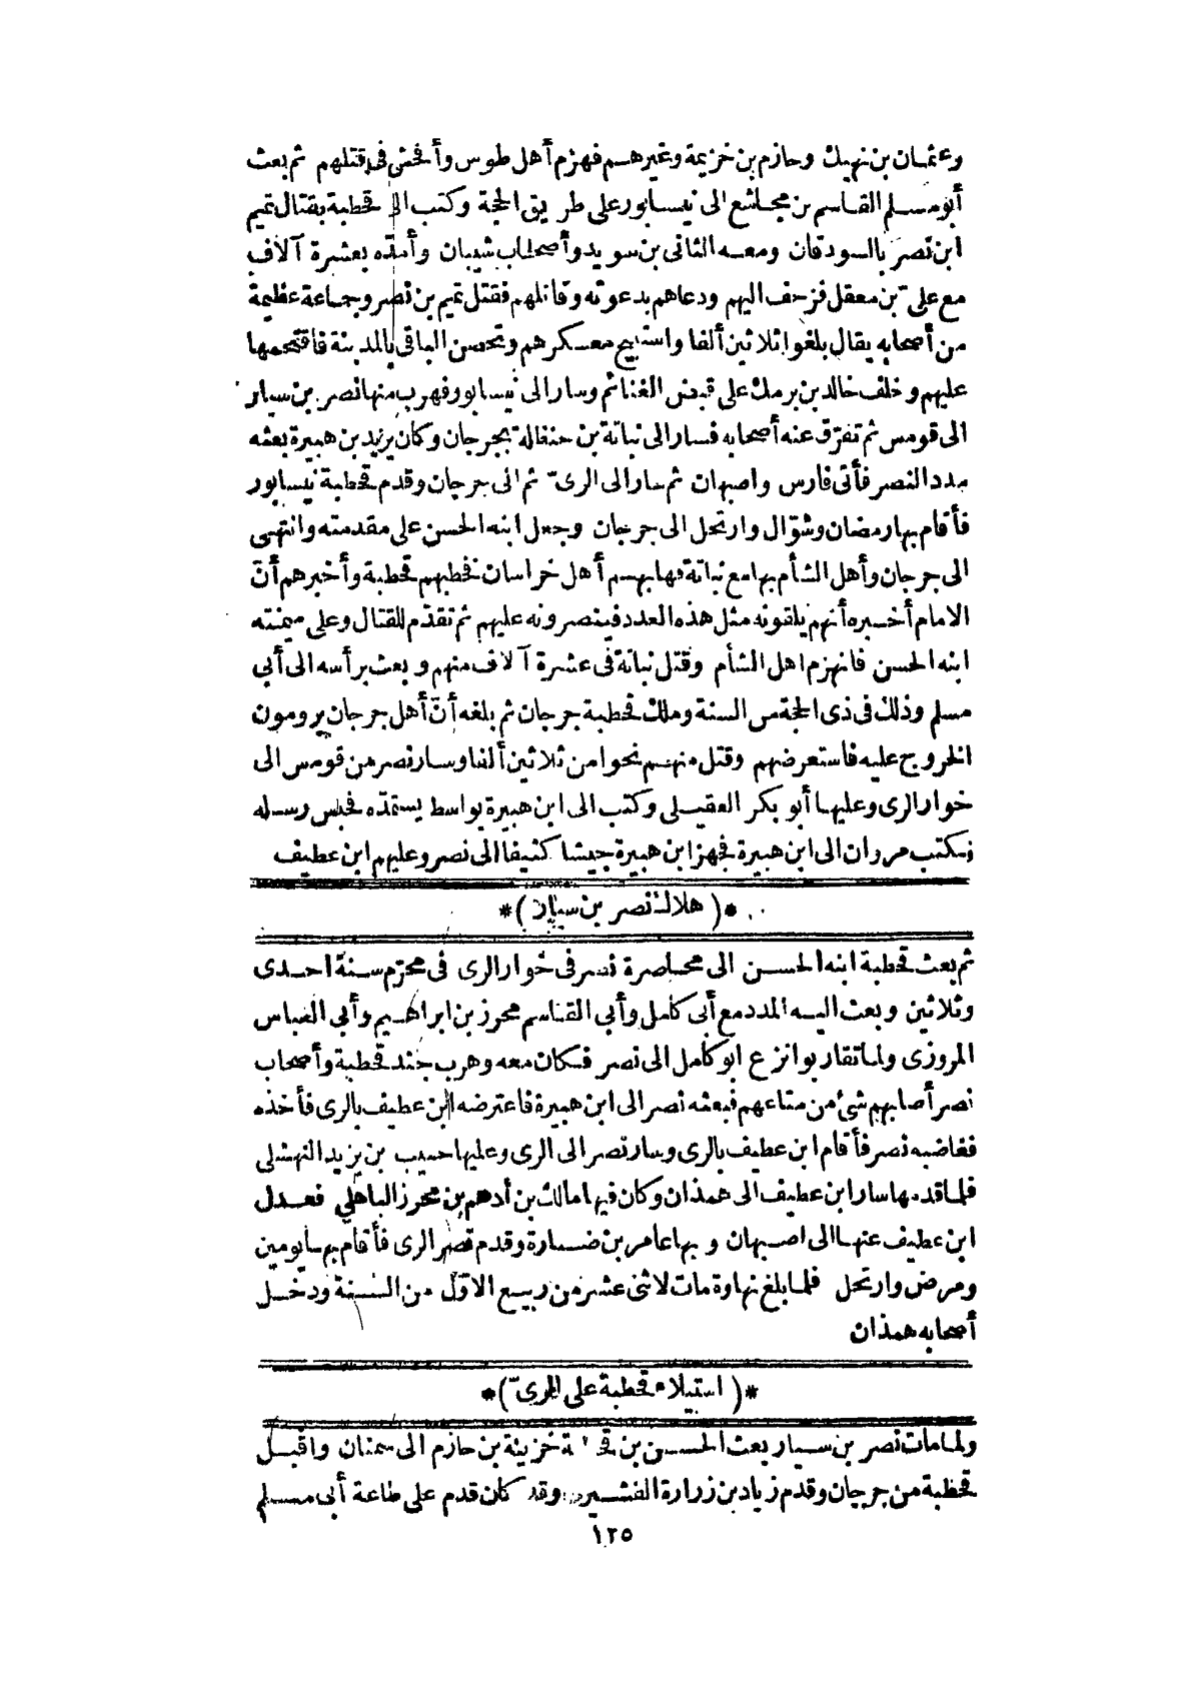 وعثمان بن نهيك وحازم بن خزيمة وغيرهم فهزم أهل طوس وأفحش فى قتلهم ثم بعث
أبو مسلم القاسم بن مجاشع الى نيسابور على طريق المحجة وكتب الى قحطبة بقتال تميم
ابن نصر بالسودقان ومعه الثانى بن سويد وأصحاب شيبان وأمدّه بعشرة آلاف
مع علىّ بن معقل فزحف اليهم ودعاهم بدعوته وقاتلهم فقتل تميم بن نصر وجماعة عظيمة
من أصحابه يقال بلغوا ثلاثين ألفا واستبيح معسكرهم وتحصن الباقى بالمدينة فاقتحمها
عليهم وخلف خالد بن برمك على قبض الغنائم وسار الى نيسابور فهرب منها نصر بن سيار
الى قومس ثم تفرّق عنه أصحابه فسار الى نباتة بن حنظلة بجرجان وكان يزيد بن هبيرة بعثه
مددا لنصر فأتى فارس واصبهان ثم سار الى الرىّ ثم الى جرجان وقدم قحطبة نيسابور
فأقام بها رمضان وشوّال وارتحل الى جرجان وجعل ابنه الحسن على مقدمته وانتهى
الى جرجان وأهل الشأم بها مع نباتة فهابهم أهل خراسان فخطبهم قحطبة وأخبرهم أنّ
الامام أخبره أنهم يلقونه مثل هذه العدد فينصرونه عليهم ثم تقدّم للقتال وعلى ميمنته
ابنه الحسن فانهزم اهل الشأم وقتل نباتة فى عشرة آلاف منهم وبعث برأسه الى أبي
مسلم وذلك فى ذى الحجة من السنة وملك قحطبة جرجان ثم بلغه أنّ أهل جرجان يرومون
الخروج عليه فاستعرضهم وقتل منهم نحوا من ثلاثين ألفا وسار نصر من قومس الى
خوار الرى وعليها أبو بكر العقيلى وكتب الى ابن هبيرة بواسط يستمدّه فحبس رسله
فكتب مروان الى ابن هبيرة فجهز ابن هبيرة جيشا كثيفا الى نصر وعليهم ابن عطيف
*( هلاك نصر بن سيار )*
ثم بعث قحطبة ابنه الحسن الى محاصرة نصر فى خوار الرى فى محرّم سنة احدى
وثلاثين وبعث اليه المدد مع أبى كامل وأبي القاسم محرز بن ابراهيم وأبي العباس
المروزى ولما تقاربوا نزع ابو كامل الى نصر فكان معه وهرب جند قحطبة وأصحاب
نصر أصابهم شئ من متاعهم فبعثه نصر الى ابن هبيرة فاعترضه ابن عطيف بالرى فأخذه
فغاضبه نصر فأقام ابن عطيف بالرى وسار نصر الى الرى وعليها حبيب بن يزيد النهشلى
فلما قدمها سار ابن عطيف الى همذان وكان فيها مالك بن أدهم بن محرز الباهلي فعدل
ابن عطيف عنها الى اصبهان وبها عامر بن ضبارة وقدم نصر الرى فأقام بها يومين
ومرض وارتحل فلما بلغ نهاوة مات لاثنى عشر من ربيع الاوّل من السنة ودخل
أصحابه همذان
*( استيلاء قحطبة على الرىّ )*
ولما مات نصر بن سيار بعث الحسن بن قحطبة خزيمة بن حازم الى سمنان واقبل
قحطبة من جرجان وقدم زياد بن زرارة القشيرى وقد كان قدم على طاعة أبى مسلم
١٢٥